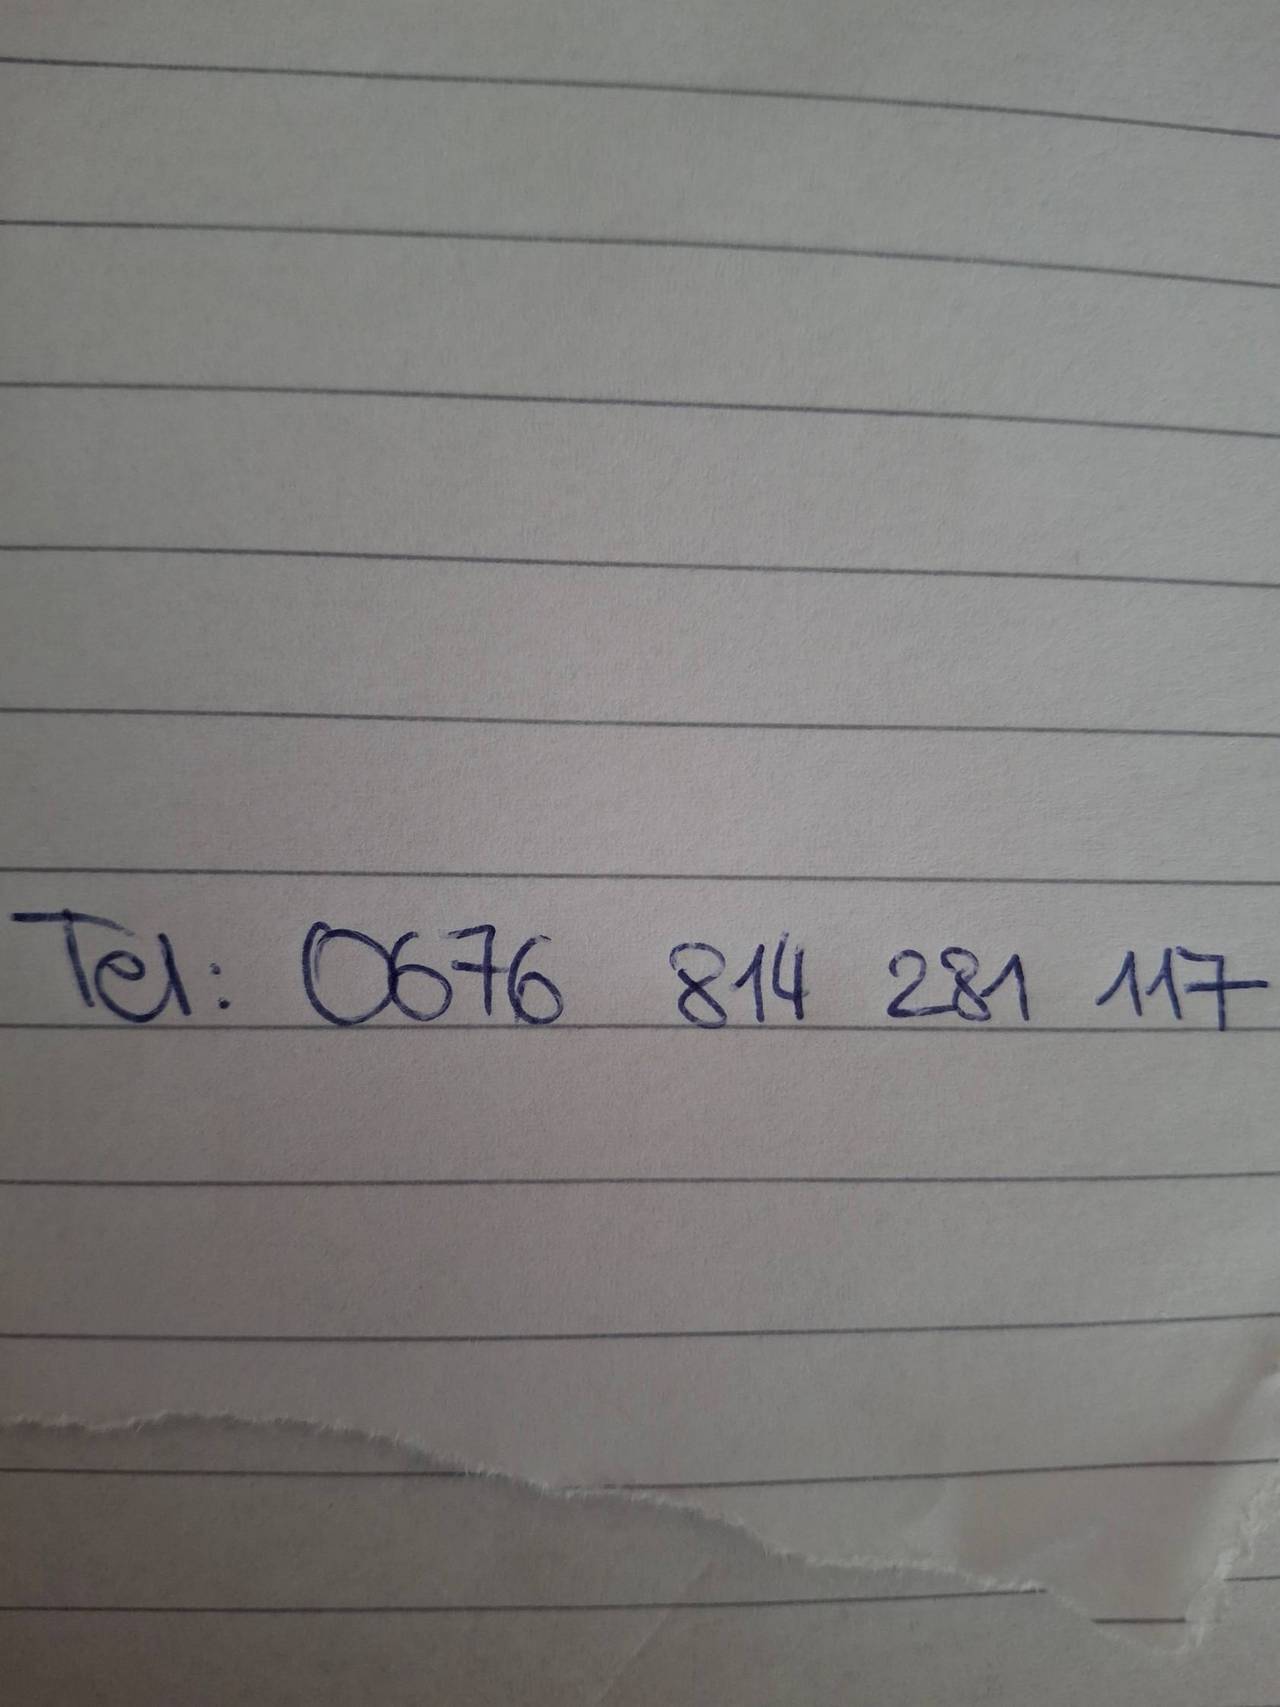 Tel: 0676 814 281 117